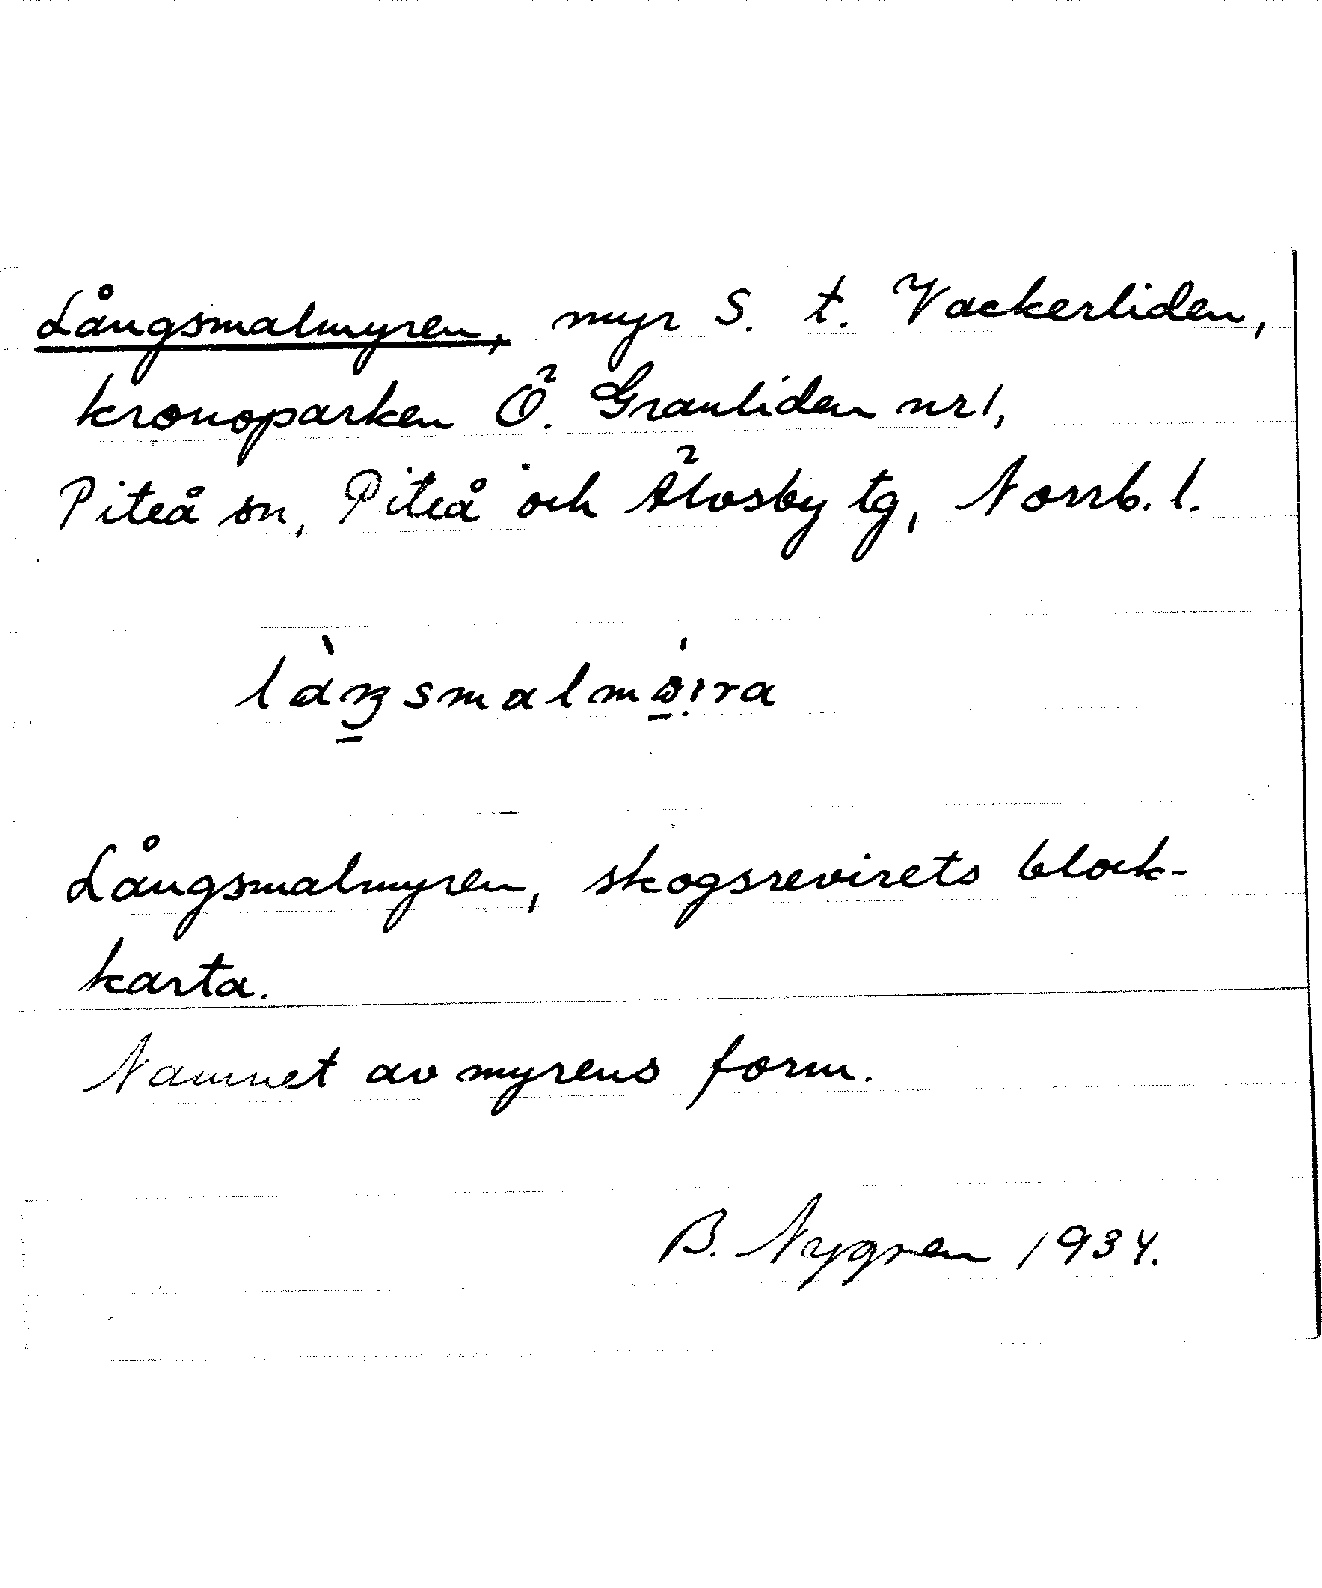 Långsmalmyren, myr S. t. Vackerliden,
kronoparken Ö. Granliden nr 1,
Piteå sn, Piteå och Älvsby tg, Norrb. l.
Långsmalmyren, skogsrevirets block-
karta.
Namnet av myrens form.
B. Nygren 1934.